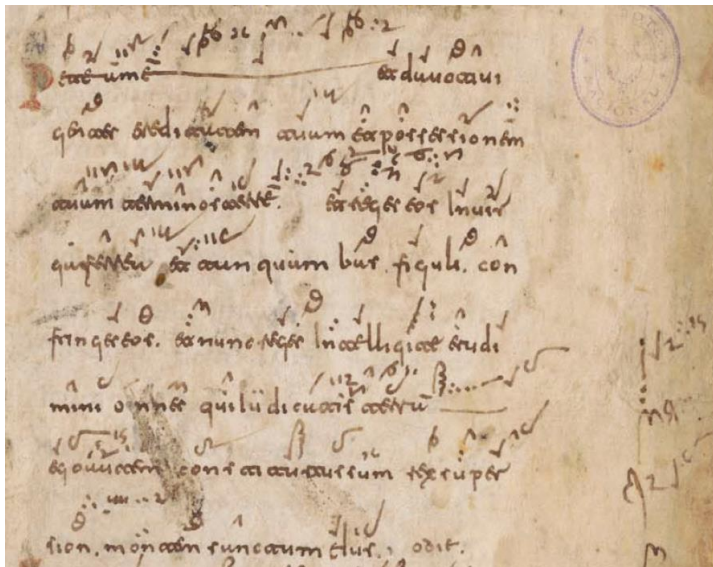 Pete a me et davo tivi
gentes ereditatem tuam et possessionem
tuam terminos terre. et reges eos in vir
ga ferrea et tamquam bas figuli. con
fringes eos. et nunc reges intelligite erudi
mini omnes qui iudicatis terram
ego autem constitutus sum rex super
sion. montem sanctum eius.